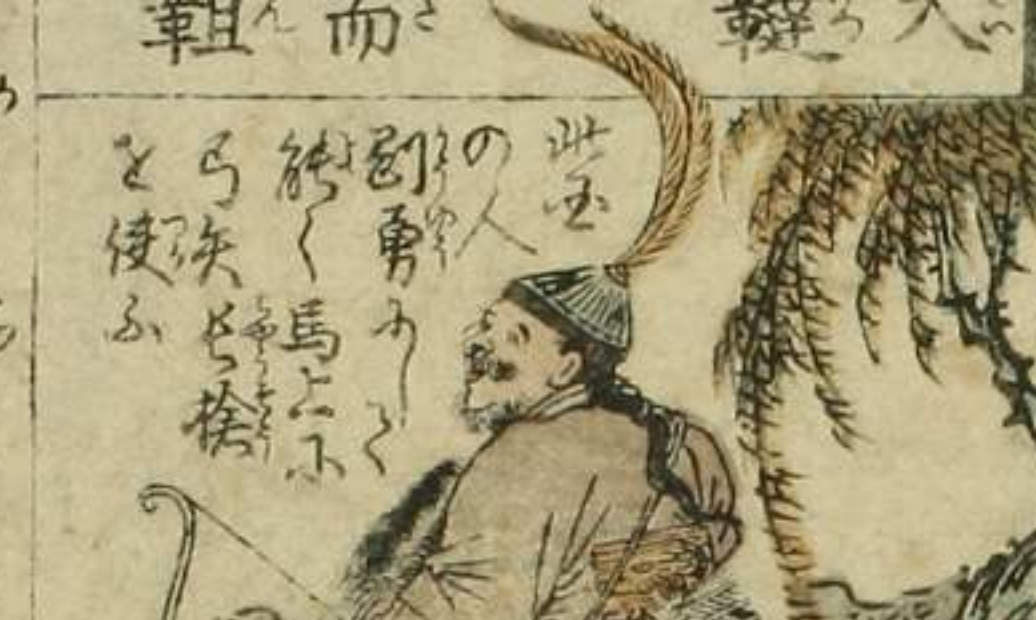 大 韃
而 靼
此国
の人
剛勇にして
能く馬上に
弓矢長槍
を使ふ